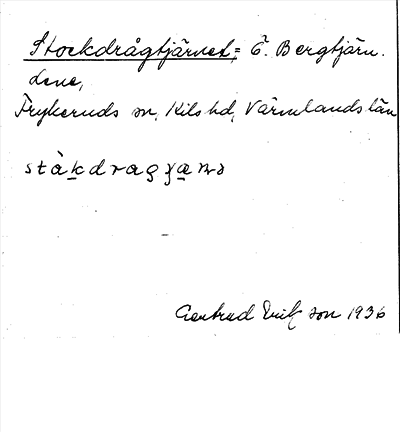 Stockdrågtjärnet; = Ö. Bergtjärn.
Lene,
Frykeruds sn, Kils hd, Värmlands län
Gertrud Eriksson 1936